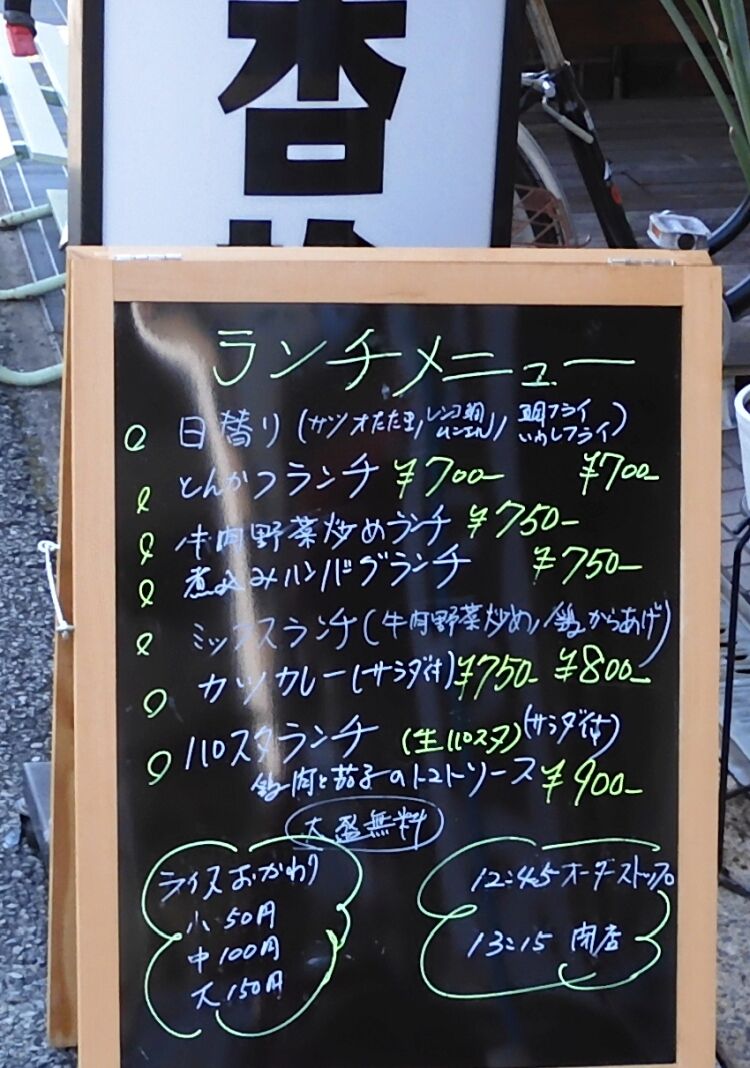 ランチメニュー
日替り(カツオたたき/レンコ鯛ムニエル/真鯛フライ いわしフライ)
¥700-
とんかつランチ ¥700-
牛肉野菜炒めランチ ¥750-
煮込みハンバーグランチ ¥750-
ミックスランチ(牛肉野菜炒め/鶏からあげ)
¥800-
カツカレー(サラダ付) ¥750-
パスタランチ (生パスタ) (サラダ付)
鶏肉と茄子のトマトソース ¥900-
大盛無料
ライスおかわり
小 50円
中 100円
大 150円
12:45 オーダーストップ
13:15 閉店